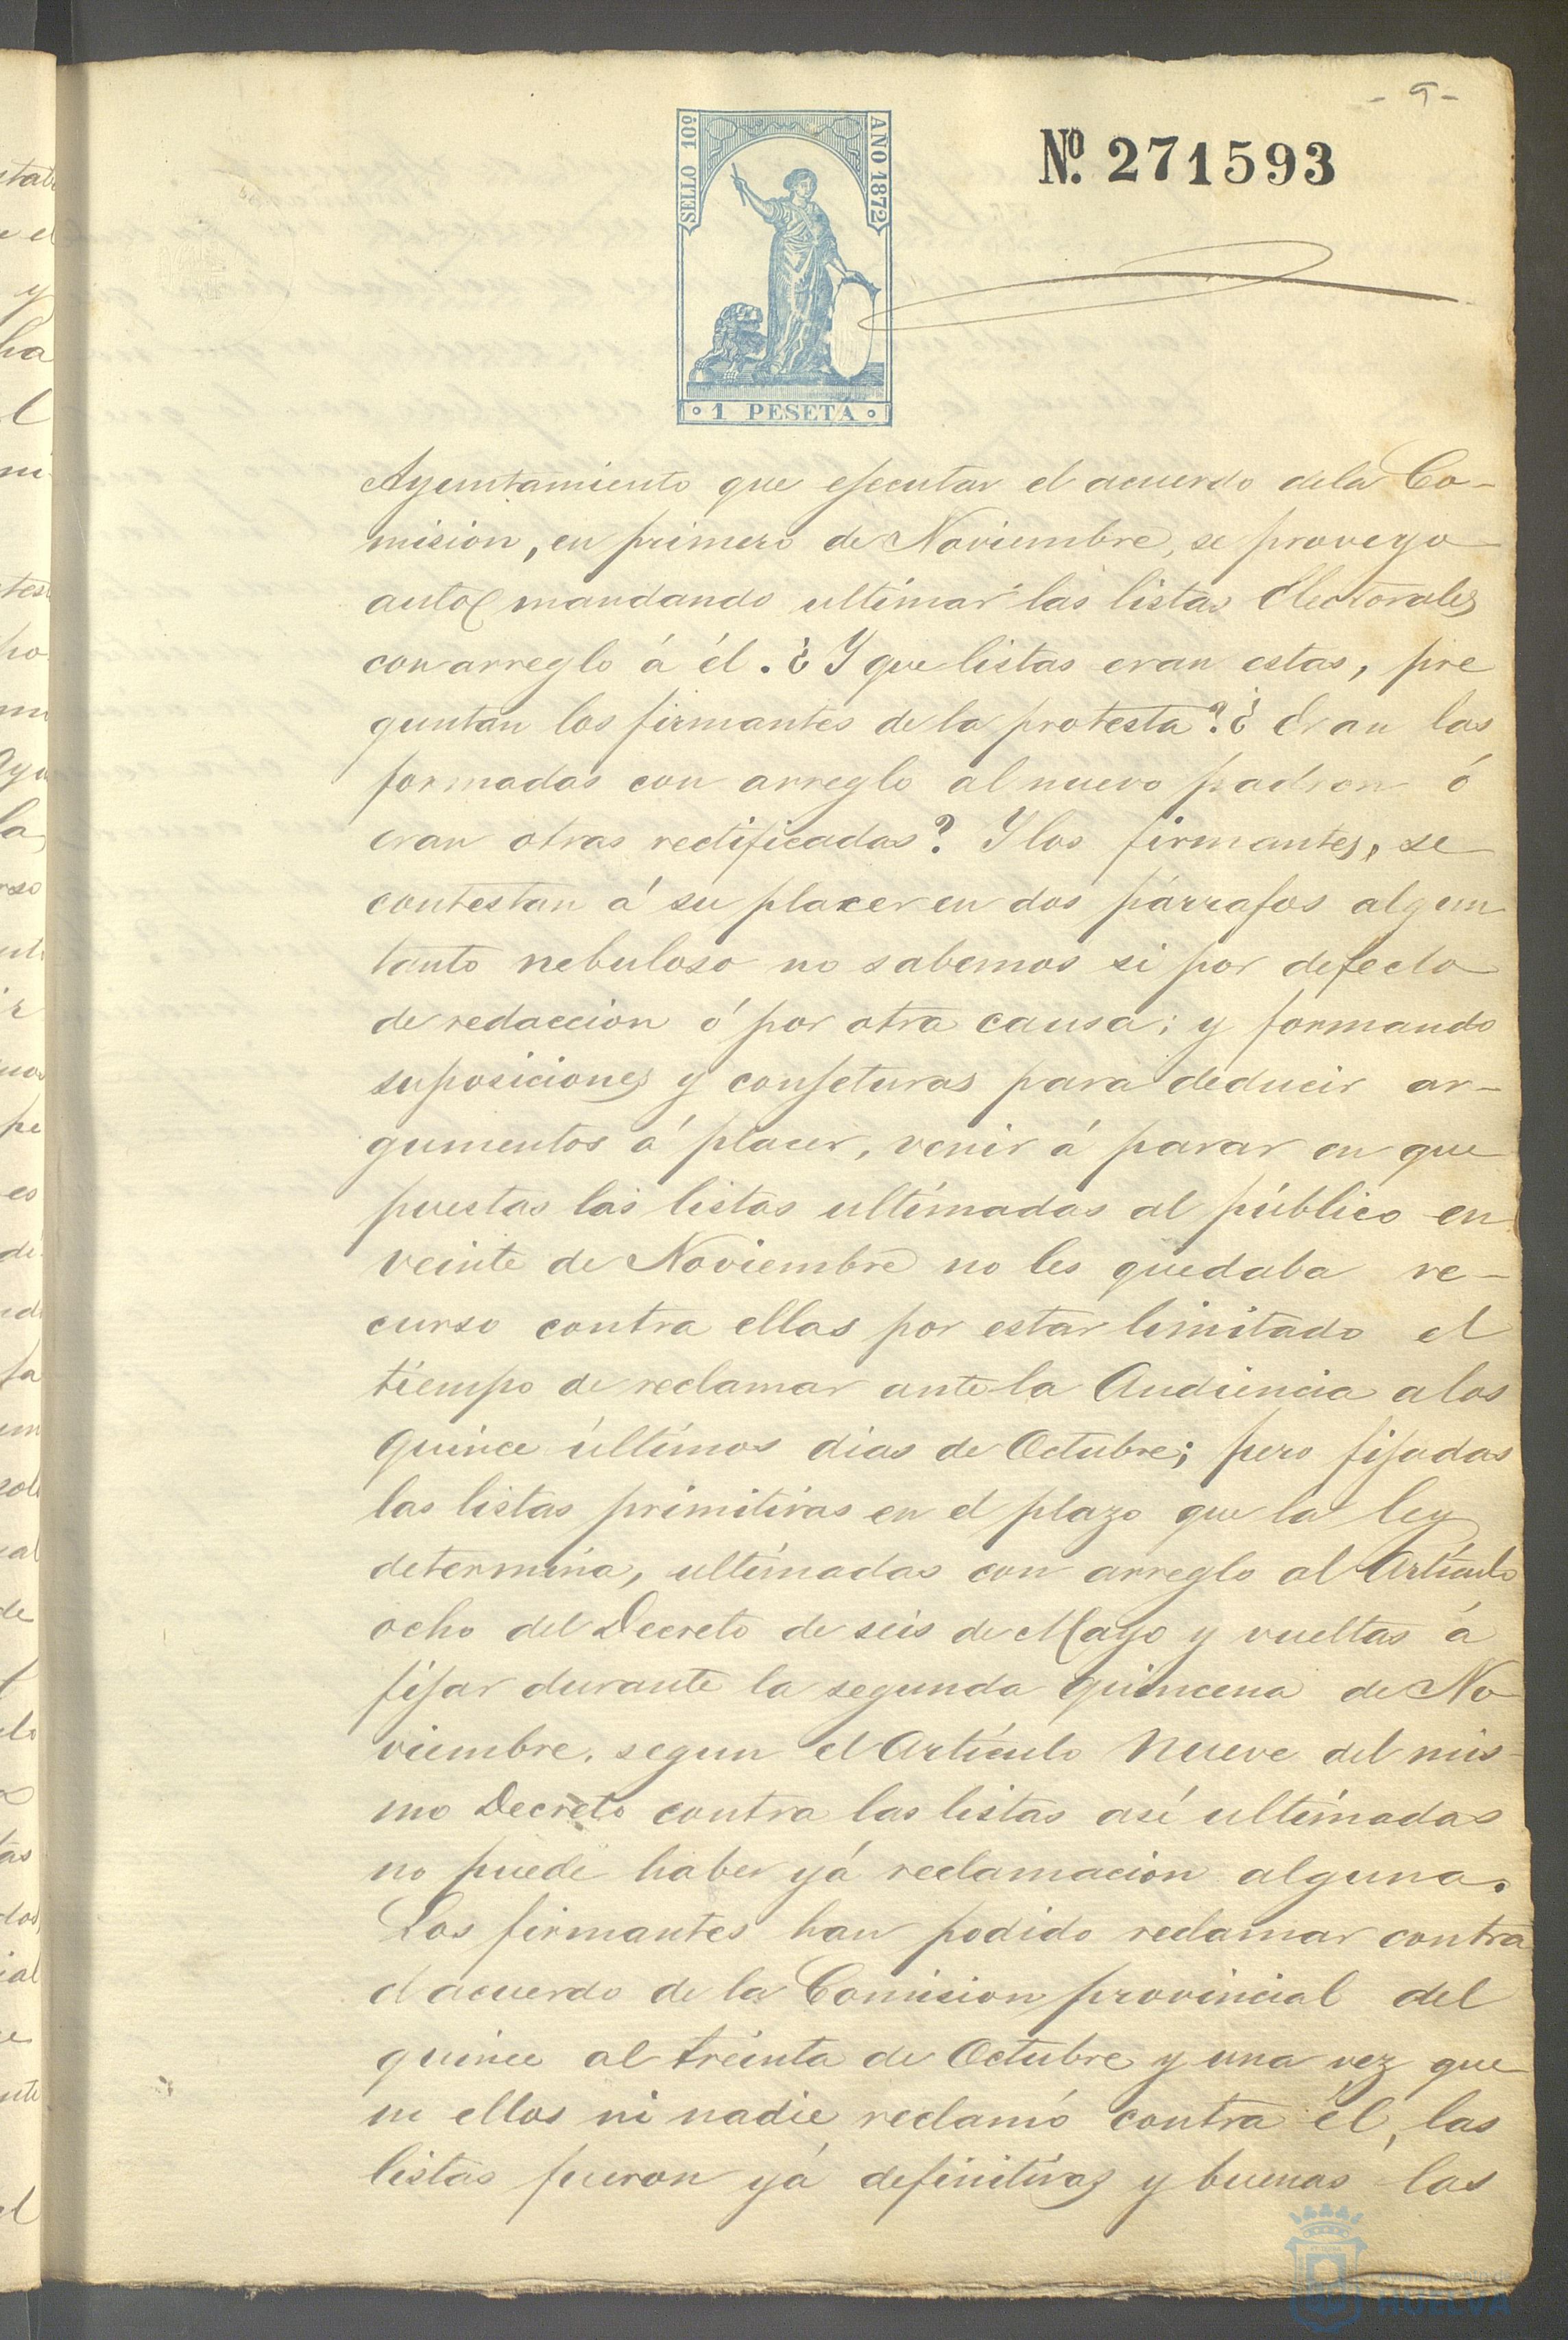 - 9 -
SELLO 10º
AÑO 1872
Nº 271593
1 PESETA
Ayuntamiento que ejecutar el acuerdo dela Co-
mision, en primero de Noviembre, se proveyo
auto mandando ultimar las listas Electorales
con arreglo á él. ¿Y que listas eran estas, pre
guntan los firmantes de la protesta? ¿Eran las
formadas con arreglo al nuevo padron ó
eran otras rectificadas? Y los firmantes, se
contestan á su placer en dos párrafos algun
tanto nebuloso no sabemos si por defecto
de redaccion ó por otra causa; y formando
suposiciones y conjeturas para deducir ar-
gumentos á placer, venir á parar en que
puestas las listas ultimadas al público en
veinte de Noviembre no les quedaba re-
curso contra ellas por estar limitado el
tiempo de reclamar ante la Audiencia a los
quince últimos dias de Octubre; pero fijadas
las listas primitivas en el plazo que la ley
determina, ultimadas con arreglo al Artículo
ocho del Decreto de seis de Mayo y vueltas á
fijar durante la segunda quincena de No
viembre, segun el Artículo Nueve del mis-
mo Decreto contra las listas así ultimadas
no puede haber yá reclamacion alguna.
Los firmantes han podido reclamar contra
el acuerdo de la Comision provincial del
quince al treinta de Octubre y una vez que
ni ellos ni nadie reclamó contra él, las
listas fueron yá definitivas y buenas las
HUELVA